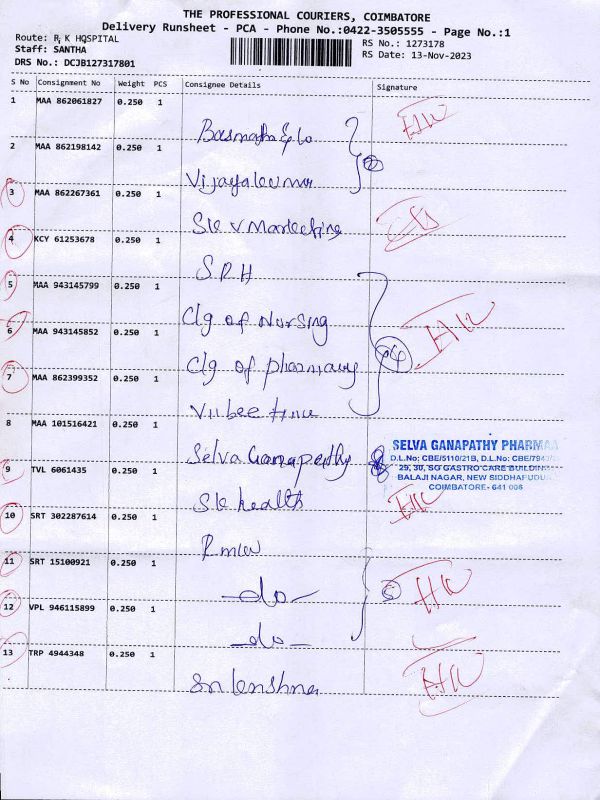 THE PROFESSIONAL COURIERS, COIMBATORE
Delivery Runsheet - PCA - Phone No.:0422-3505555 - Page No.:1
Route: R K HOSPITAL
RS No.: 1273178
Staff: SANTHA
RS Date: 13-Nov-2023
DRS No.: DCJB127317801
S No Consignment No Weight PCS Consignee Details Signature
1 MAA 862061827 0.250 1
2 MAA 862198142 0.250 1
Vijayakumar
3 MAA 862267361 0.250 1
Sk v Marketing
4 KCY 61253678 0.250 1
S.R.H
5 MAA 943145799 0.250 1
Clg of Nursing
6 MAA 943145852 0.250 1
Clg of pharmacy
7 MAA 862399352 0.250 1
8 MAA 101516421 0.250 1
Selva Ganapathy
SELVA GANAPATHY PHARMA
D.L.No; CBE/5110/21B, D.L.No; CBE/
29, 30, SG GASTRO CARE BUILDING
BALAJI NAGAR, NEW SIDDHAPUDUR
COIMBATORE- 641 006
9 TVL 6061435 0.250 1
Sk health
10 SRT 302287614 0.250 1
11 SRT 15100921 0.250 1
-do-
12 VPL 946115899 0.250 1
-do-
13 TRP 4944348 0.250 1